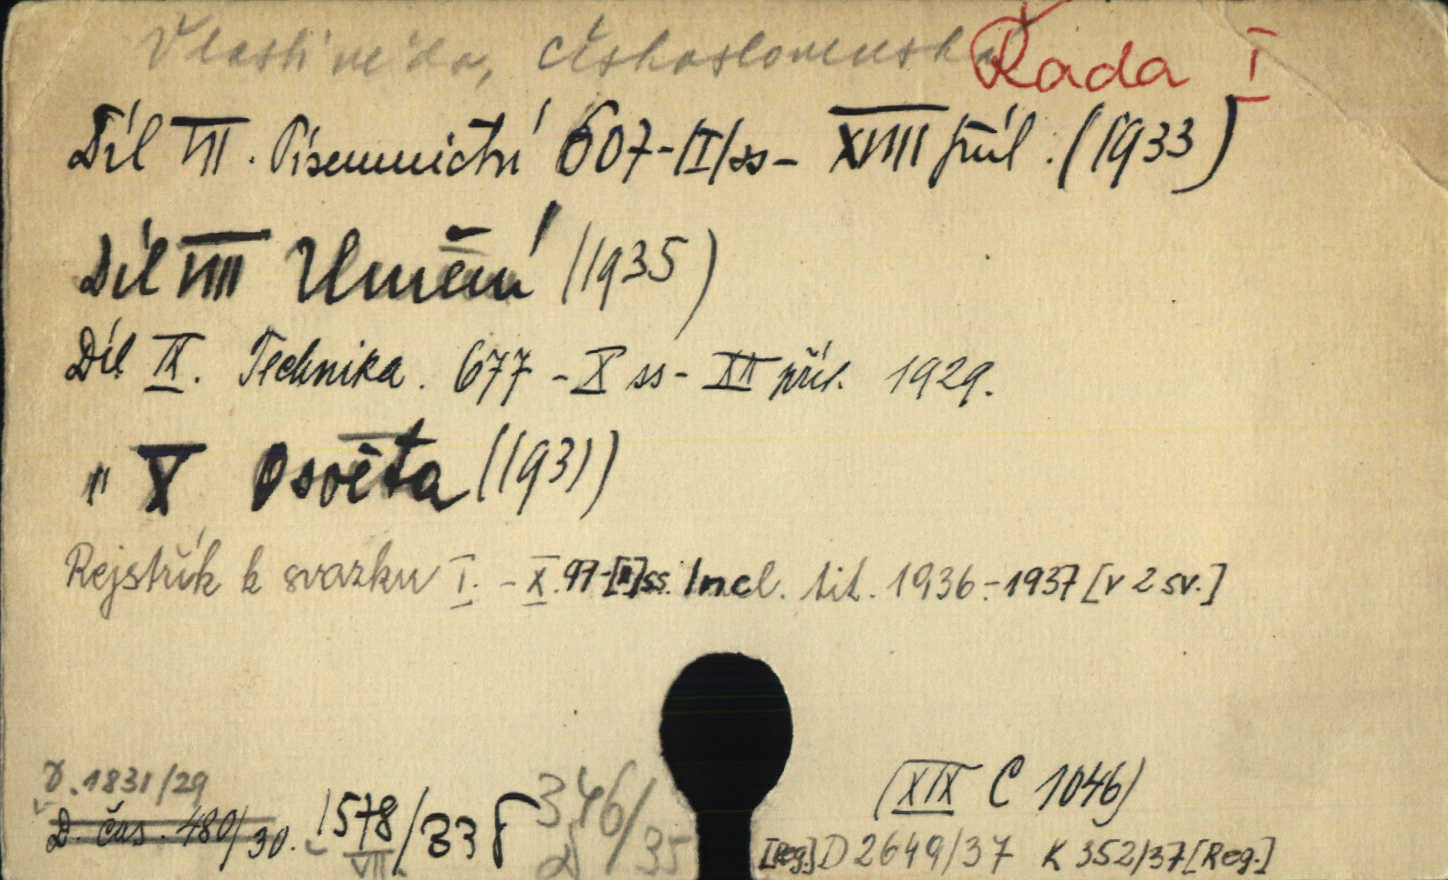 Vlastivěda, československá Řada I
Díl VII. Písemnictví 607-[I]ss- XVIII příl. (1933)
Díl VIII Umění (1935)
Díl IX. Technika. 677 - X ss - XII příl. 1929.
" X Osvěta (1931)
Rejstřík k svazku I. - X. 97-[II]ss. Incl. tit. 1936-1937 [v 2 sv.]
D. 1831/29
D. čas. 480/30. 1578/33 346/35
VII.
(XIX C 1046)
[Reg.] D 2649/37 K 352/37 [Reg.]